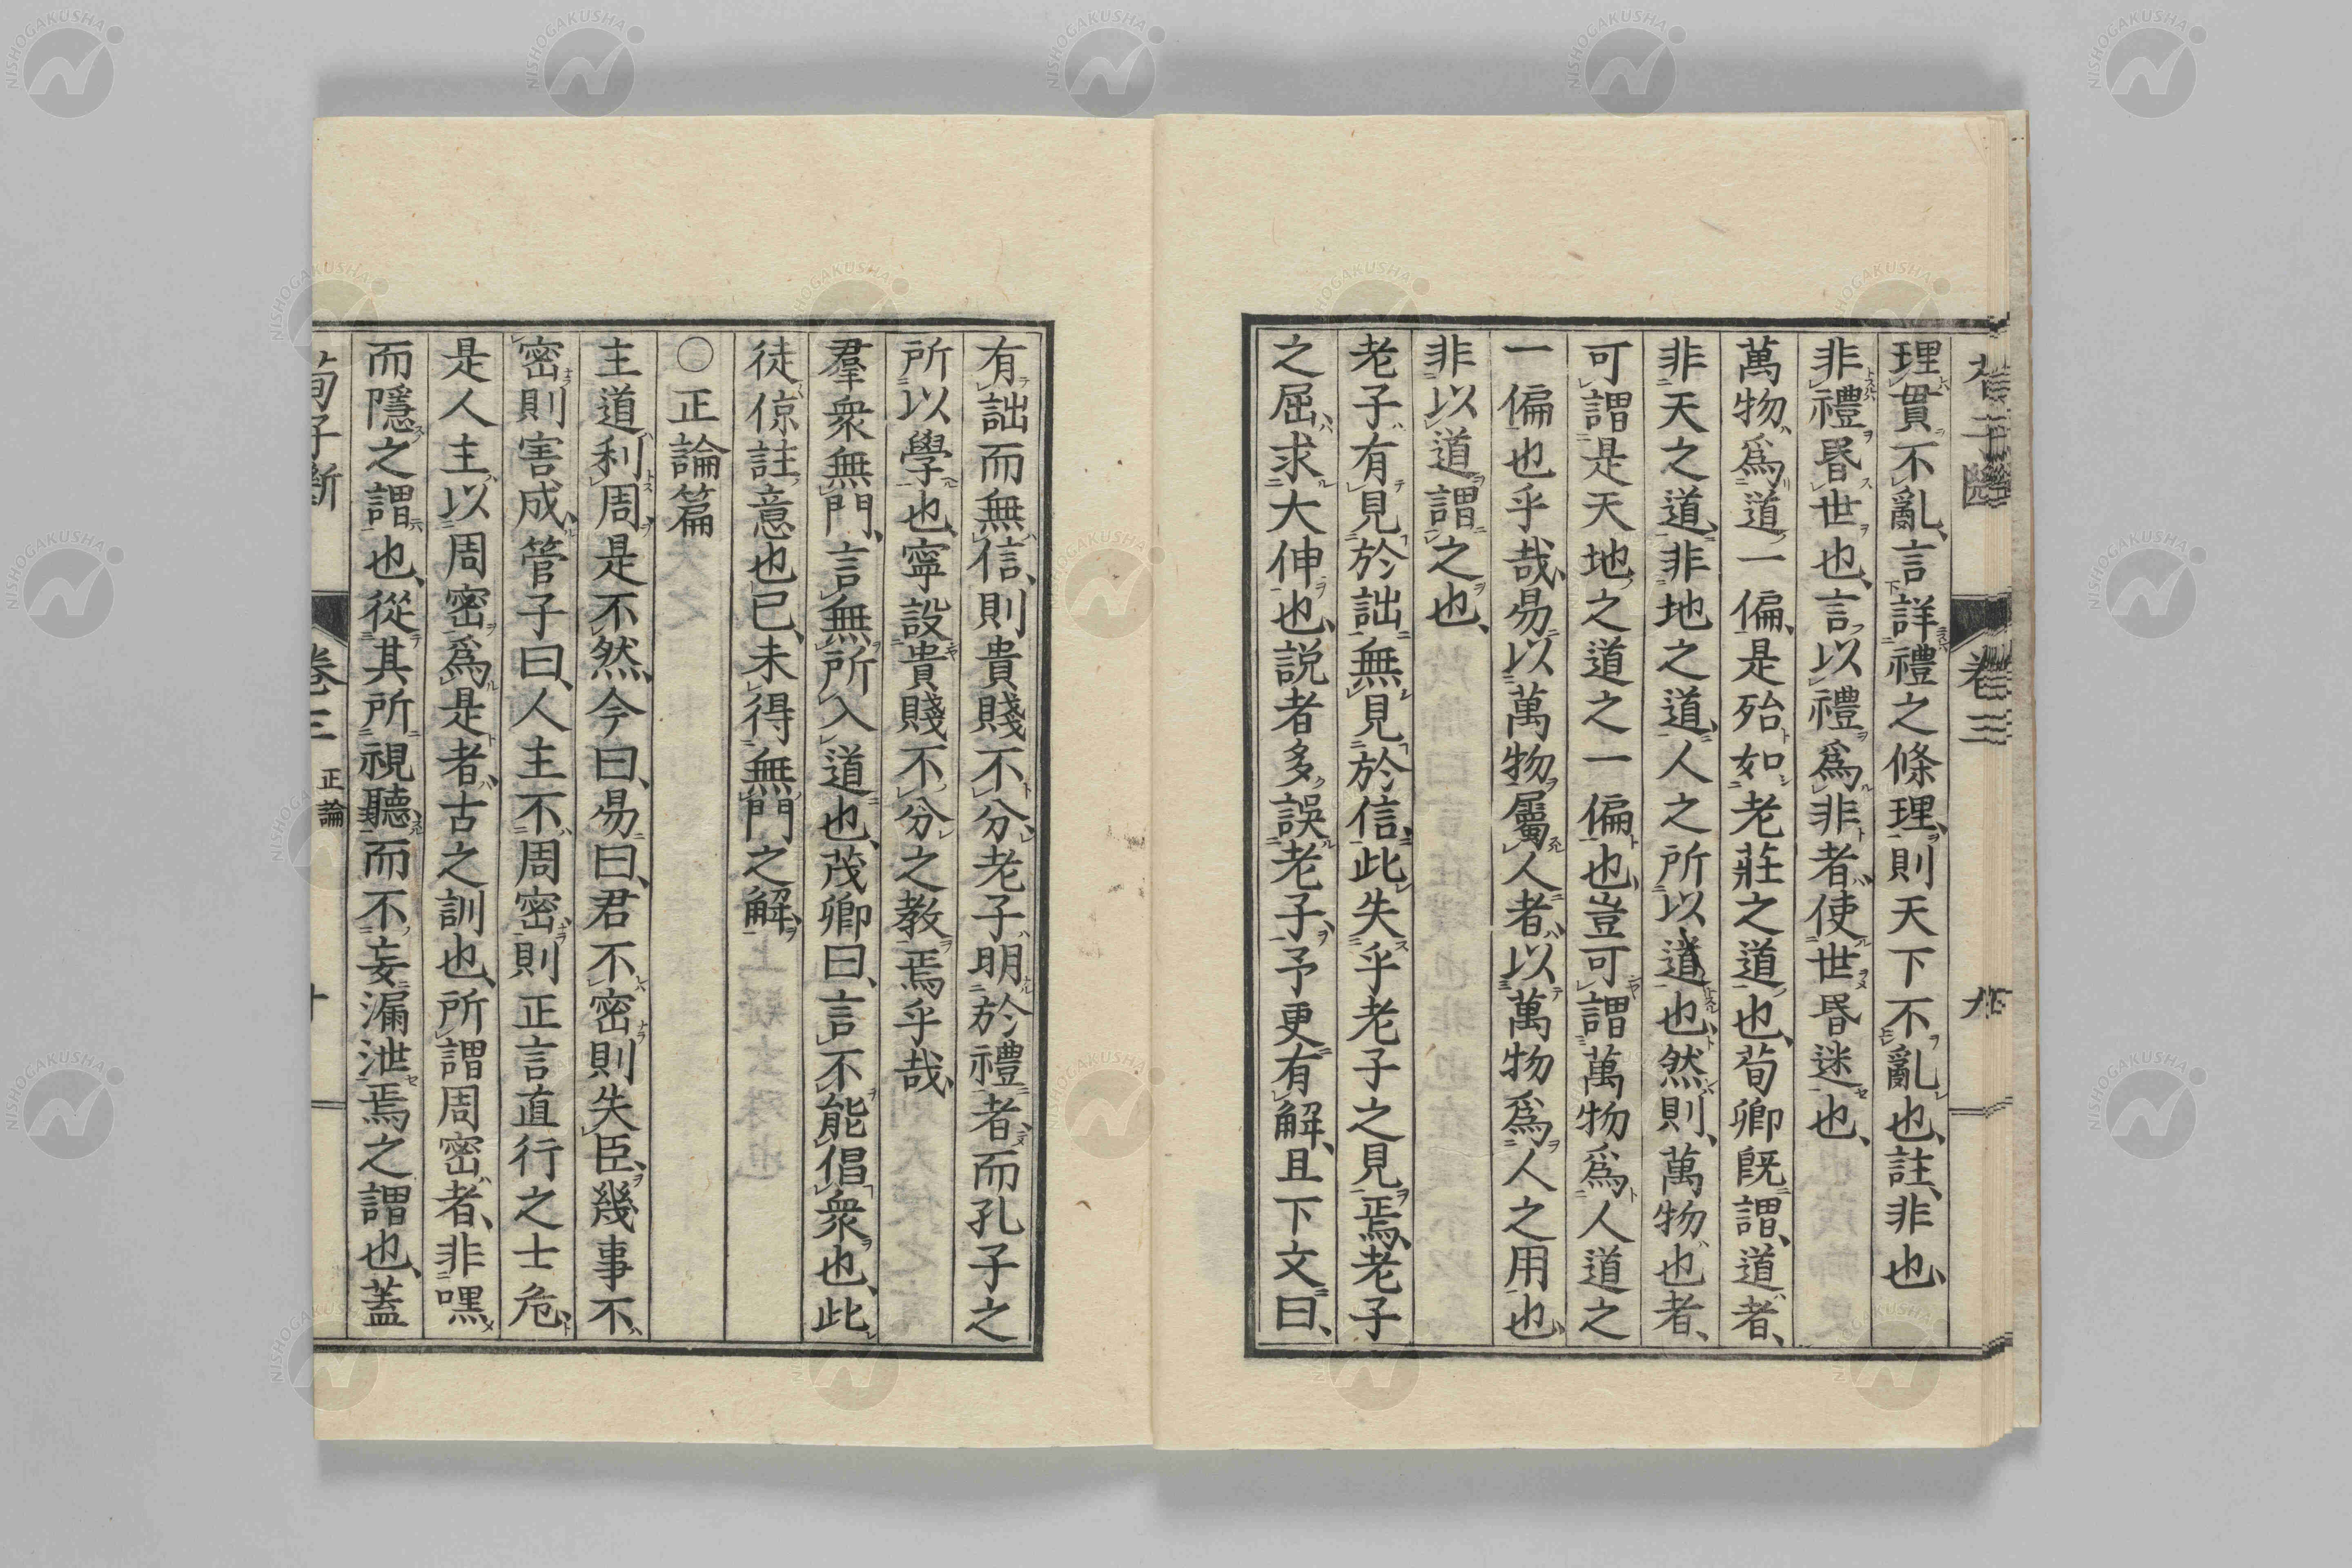 理貫不亂、言詳禮之條理、則天下不亂也、註、非也、
非禮昬世也、言以禮爲非者、使世昬迷也、
萬物爲道一偏、是殆如老莊之道也、荀卿旣謂、道者、
非天之道、非地之道、人之所以道也、然則、萬物也者、
可謂是天地之道之一偏也、豈可謂萬物爲人道之
一偏也乎哉、易以萬物屬人者、以萬物爲人之用也、
非以道謂之也、
老子有見於詘無見於信、此失乎老子之見焉、老子
之屈、求大伸也、說者多誤老子、予更有解、且下文曰、
有詘而無信、則貴賤不分、老子明於禮者、而孔子之
所以學也、寧設貴賤不分之教焉乎哉、
羣衆無門、言無所入道也、茂卿曰、言不能倡衆也、此
徒倞註意也已、未得無門之解、
○正論篇
主道利周是不然、今曰、易曰、君不密則失臣、幾事不
密則害成、管子曰、人主不周密則正言直行之士危、
是人主以周密爲是者、古之訓也、所謂周密者、非嘿
而隱之謂也、從其所視聽而不妄漏泄焉之謂也、蓋
荀子斷
卷三
正論
十
卷三
九
NISHOGAKUSHA